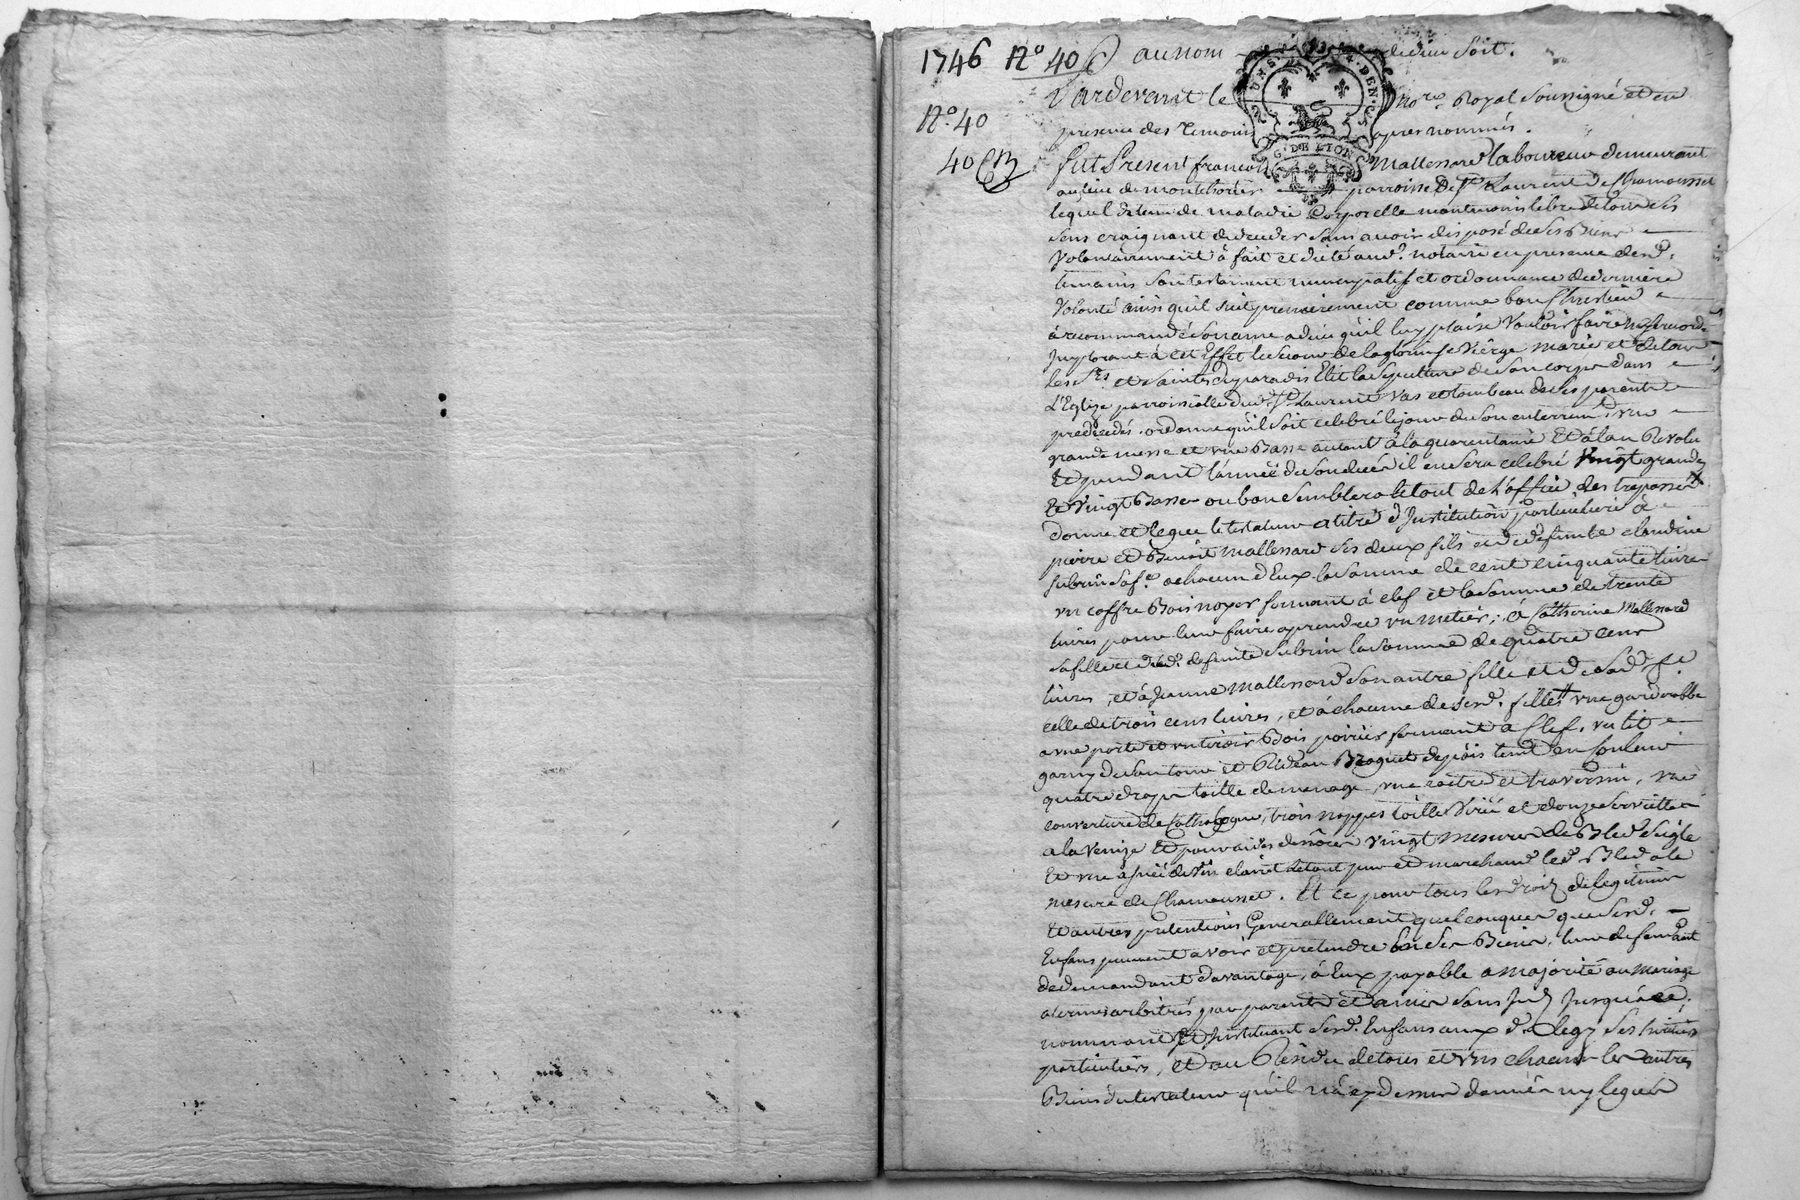 1746 N.º 40 au nom de dieu soit.
N.º 40
40
Pardevant le no.re Royal soussigné et en
presence des temoins apres nommés.
G. DE LION
fut Present francois Mallessard laboureur demeurant
au lieu de parroisse de St. Laurent de Chamousset
lequel detenu de maladie Corporelle neantmoins libre de tous ses
sens craignant de deceder sans avoir disposé de ses Biens
Volontairement à fait et dicté aud. notaire en presence desd.
temoins son testament nuncupatif et ordonnance de derniere
Volonté ainsi qu'il suit premierement comme bon Chrestien
à recommandé son ame a dieu qu'il luy plaise Vouloir faire
Implorant à cet Effet le secour de la glorieuse Vierge Marie et de tous
les Sts et saintes du paradis Elit la sepulture de son corps dans
L'Eglize parroissialle dud. St. Laurent Vas et tombeau de ses parents
predecedés. ordonne qu'il soit celebré le jour de son enterrem.t une
grande messe et une Basse autant à la quarantaine Et à l'an Revolu
Et pendant l'année de son decés il en sera celebré Vingt grandes
Et Vingt Basses ou bon semblera le tout de l'office des trepassés
donne et legue le testateur a titre d'Institution particuliere à
pierre et Benoit Mallessard ses deux fils et de defunte claudine
Subrin sa f.e a chacun d'Eux la somme de cent cinquante livres
un coffre Bois noyer fermant à clef et la somme de trente
livres pour leur faire aprendre un metier; à Catherine Mallessard
sa fille et de lad. defunte Subrin la somme de quatre cens
livres, et à Jeanne Mallessard son autre fille et de sad. f.e
celle de trois cens livres, et à chacune de sesd. filles une garderobbe
a une porte et un tiroir Bois poirier fermant à Clef, un lit
garny de son tour et Rideau
quatre draps toille de menage, une coitre et traversin, une
couverture de Cathalogne, trois nappes toille et douze serviettes
a la Venize Et pour aides de nôces Vingt mesures de Bled seigle
Et une asnée de Vin clairet le tout pur et marchand led. Bled a la
mesure de Chamousset. Et ce pour tous les droits de legitime
Et autres pretentions Generallement quelconques que sesd.
Enfans peuvent avoir et pretendre sur ses Biens, leur defendant
de demandant d'avantage, à Eux payable a majorité ou mariage
a termes arbitrés par parents et amis sans Jusqu'à ce.
nommant Et Instituant sesd. Enfans aux d. legs ses heritiers
particuliers, Et au Residu de tous et uns chacuns les autres
Biens du testateur qu'il n'a cy dessus donnés ny legués